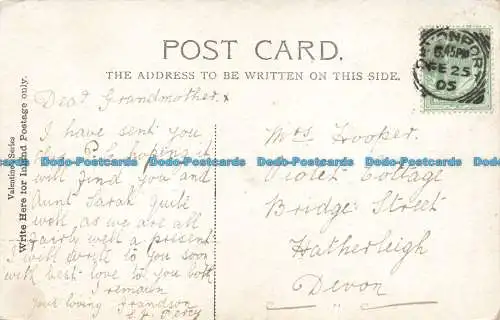 POST CARD.
THE ADDRESS TO BE WRITTEN ON THIS SIDE.
Valentines Series
Write Here for Inland Postage only.
6.45PM
FE 25
05
Dear Grandmother x
I have sent you
this P.C. hoping it
will find you and
Aunt Sarah quite
well, as we are all
fairly well a present
I will write to you soon
with best love to you both
I remain
your loving Grandson
Percy
Mrs Hooper.
Violet Cottage
Bridge Street
Hatherleigh
Devon
Db-Postcards Db-Postcards Db-Postcards Db-Postcards
Db-Postcards Db-Postcards Db-Postcards Db-Postcards